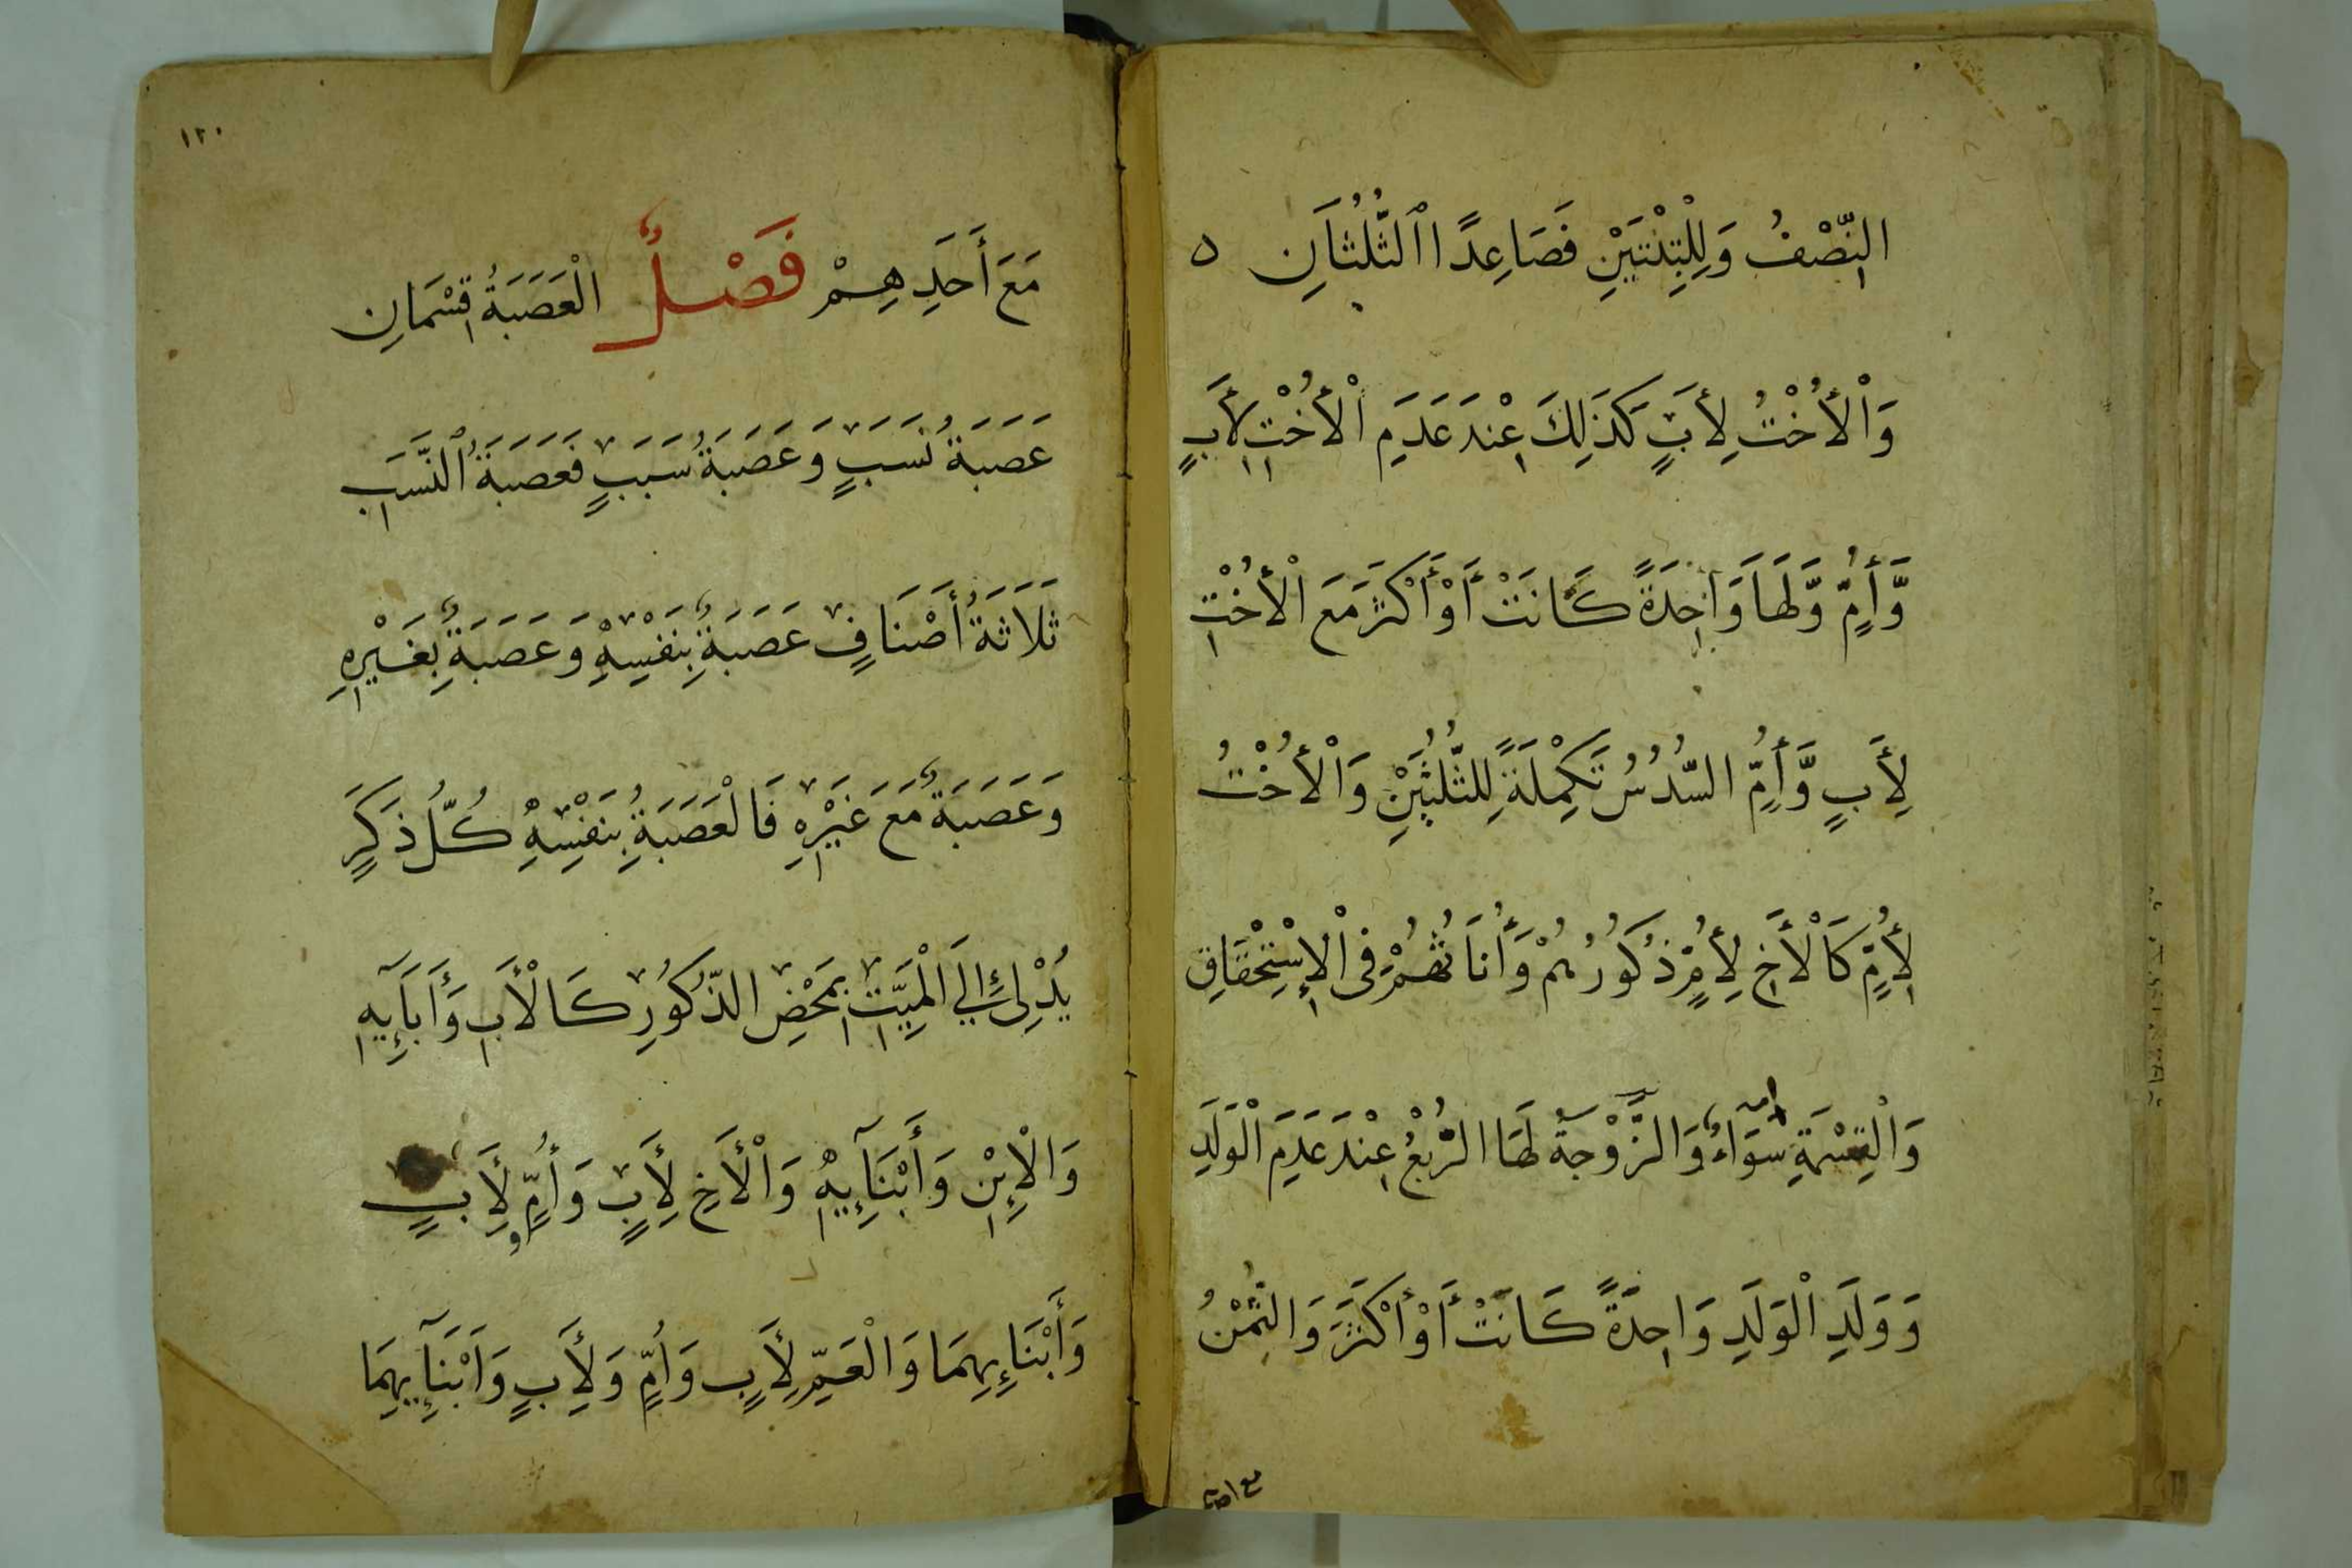 النِّصْفُ وَلِلْبِنْتَيْنِ فَصَاعِدًا الثُّلُثَانِ ٥
وَالْأُخْتُ لِأَبٍ كَذَلِكَ عِنْدَ عَدَمِ الْأُخْتِ لِأَبٍ
وَّأُمٍّ وَّلَهَا وَاحِدَةً كَانَتْ أَوْ أَكْثَرَ مَعَ الْأُخْتِ
لِأَبٍ وَّأُمِّ السُّدُسُ تَكْمِلَةً لِلثُّلُثَيْنِ وَالْأُخْتُ
لِأُمٍّ كَالْأَخِ لِأُمٍّ ذُكُورُهُمْ وَأُنَاثُهُمْ فِى الْإِسْتِحْقَاقِ
وَالْقِسْمَةِ سَوَاءٌ وَالزَّوْجَةُ لَهَا الرُّبْعُ عِنْدَ عَدَمِ الْوَلَدِ
وَوَلَدِ الْوَلَدِ وَاحِدَةً كَانَتْ أَوْ أَكْثَرَ وَالثُّمْنُ
مع احد
١٢٠
مَعَ أَحَدِهِمْ فَصْلٌ الْعَصَبَةُ قِسْمَانِ
عَصَبَةُ نَسَبٍ وَعَصَبَةُ سَبَبٍ فَعَصَبَةُ النَّسَبِ
ثَلَاثَةُ أَصْنَافٍ عَصَبَةٌ بِنَفْسِهِ وَعَصَبَةٌ بِغَيْرِهِ
وَعَصَبَةٌ مَعَ غَيْرِهِ فَالْعَصَبَةُ بِنَفْسِهِ كُلُّ ذَكَرٍ
يُدْلِىْ إِلَي الْمَيِّتِ بِمَحْضِ الذُّكُورِ كَالْأَبِ وَأَبَآئِهِ
وَالْإِبْنِ وَأَبْنَآئِهِ وَالْأَخِ لِأَبٍ وَأُمٍّ وَلِأَبٍ
وَأَبْنَائِهِمَا وَالْعَمِّ لِأَبٍ وَأُمٍّ وَلِأَبٍ وَأَبْنَآئِهِمَا